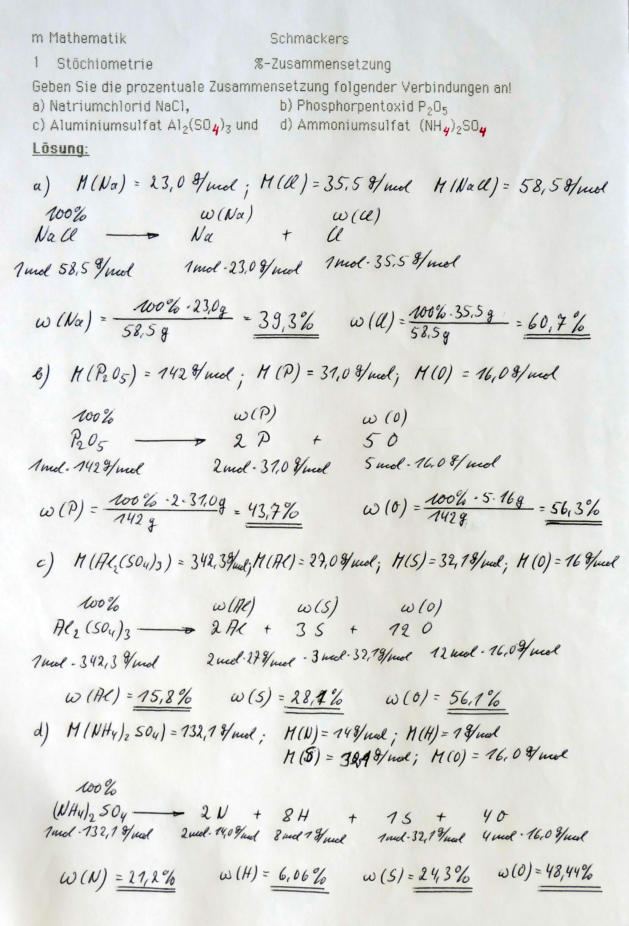 m Mathematik Schmackers
1 Stöchiometrie %-Zusammensetzung
Geben Sie die prozentuale Zusammensetzung folgender Verbindungen an!
a) Natriumchlorid NaCl, b) Phosphorpentoxid P₂O₅
c) Aluminiumsulfat Al₂(SO₄)₃ und d) Ammoniumsulfat (NH₄)₂SO₄
Lösung:
a) M(Na) = 23,0 g/mol ; M(Cl) = 35,5 g/mol M(NaCl) = 58,5 g/mol
100% w(Na) w(Cl)
NaCl → Na + Cl
1mol 58,5 g/mol 1mol·23,0 g/mol 1mol·35,5 g/mol
w(Na) = 100%·23,0g / 58,5g = 39,3% w(Cl) = 100%·35,5g / 58,5g = 60,7%
b) M(P₂O₅) = 142 g/mol ; M(P) = 31,0 g/mol; M(O) = 16,0 g/mol
100% w(P) w(O)
P₂O₅ → 2 P + 5 O
1mol·142 g/mol 2mol·31,0 g/mol 5mol·16,0 g/mol
w(P) = 100%·2·31,0g / 142 g = 43,7% w(O) = 100%·5·16g / 142g = 56,3%
c) M(Al₂(SO₄)₃) = 342,3 g/mol; M(Al) = 27,0 g/mol; M(S) = 32,1 g/mol; M(O) = 16 g/mol
100% w(Al) w(S) w(O)
Al₂(SO₄)₃ → 2 Al + 3 S + 12 O
1mol·342,3 g/mol 2mol·27 g/mol · 3mol·32,1 g/mol 12mol·16,0 g/mol
w(Al) = 15,8% w(S) = 28,1% w(O) = 56,1%
d) M(NH₄)₂SO₄) = 132,1 g/mol ; M(N) = 14 g/mol ; M(H) = 1 g/mol
M(S) = 32,1 g/mol; M(O) = 16,0 g/mol
100%
(NH₄)₂SO₄ → 2 N + 8 H + 1 S + 4 O
1mol·132,1 g/mol 2mol·14,0 g/mol 8mol 1 g/mol 1mol·32,1 g/mol 4mol·16,0 g/mol
w(N) = 21,2% w(H) = 6,06% w(S) = 24,3% w(O) = 48,44%